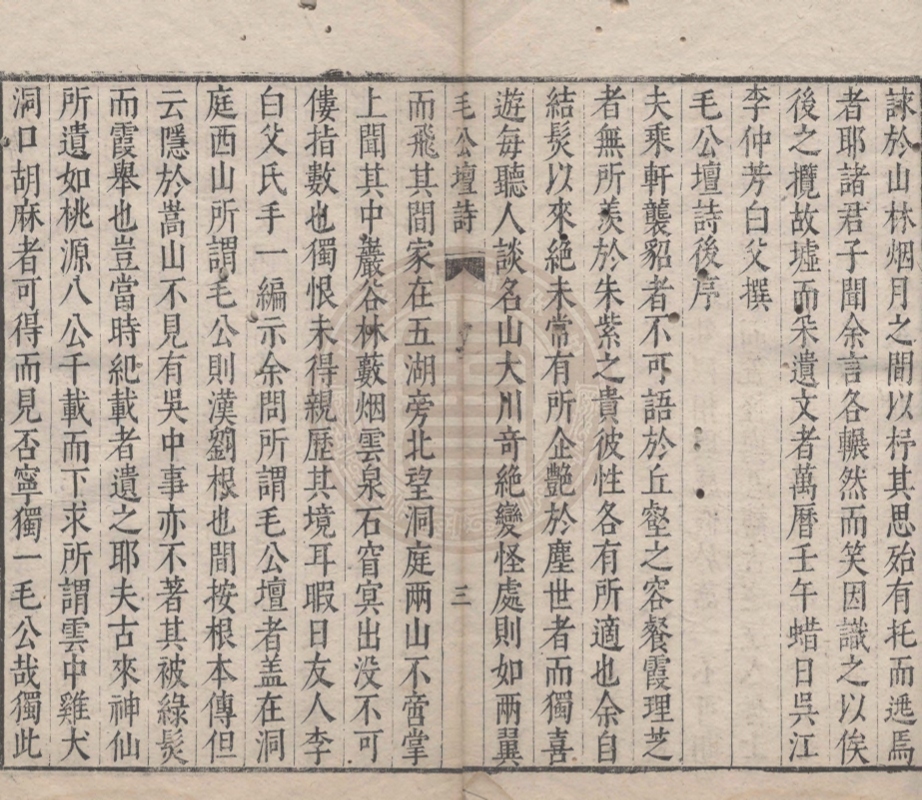 諫於山林烟月之間以抒其思殆有托而逃焉
者耶諸君子聞余言各輾然而笑因識之以俟
後之攬故墟而采遺文者萬曆壬午蜡日吳江
李仲芳白父撰
毛公壇詩後序
夫乘軒襲貂者不可語於丘壑之容餐霞理芝
者無所羨於朱紫之貴彼性各有所適也余自
結髮以來絕未常有所企艷於塵世者而獨喜
遊每聽人談名山大川奇絕變怪處則如兩翼
毛公壇詩
三
而飛其間家在五湖旁北望洞庭兩山不啻掌
上聞其中巖谷林藪烟雲泉石窅冥出没不可
僂指數也獨恨未得親歷其境耳暇日友人李
白父氏手一編示余問所謂毛公壇者盖在洞
庭西山所謂毛公則漢劉根也間按根本傳但
云隱於嵩山不見有吳中事亦不著其被綠髮
而霞舉也豈當時紀載者遺之耶夫古來神仙
所遺如桃源八公千載而下求所謂雲中雞犬
洞口胡麻者可得而見否寧獨一毛公哉獨此